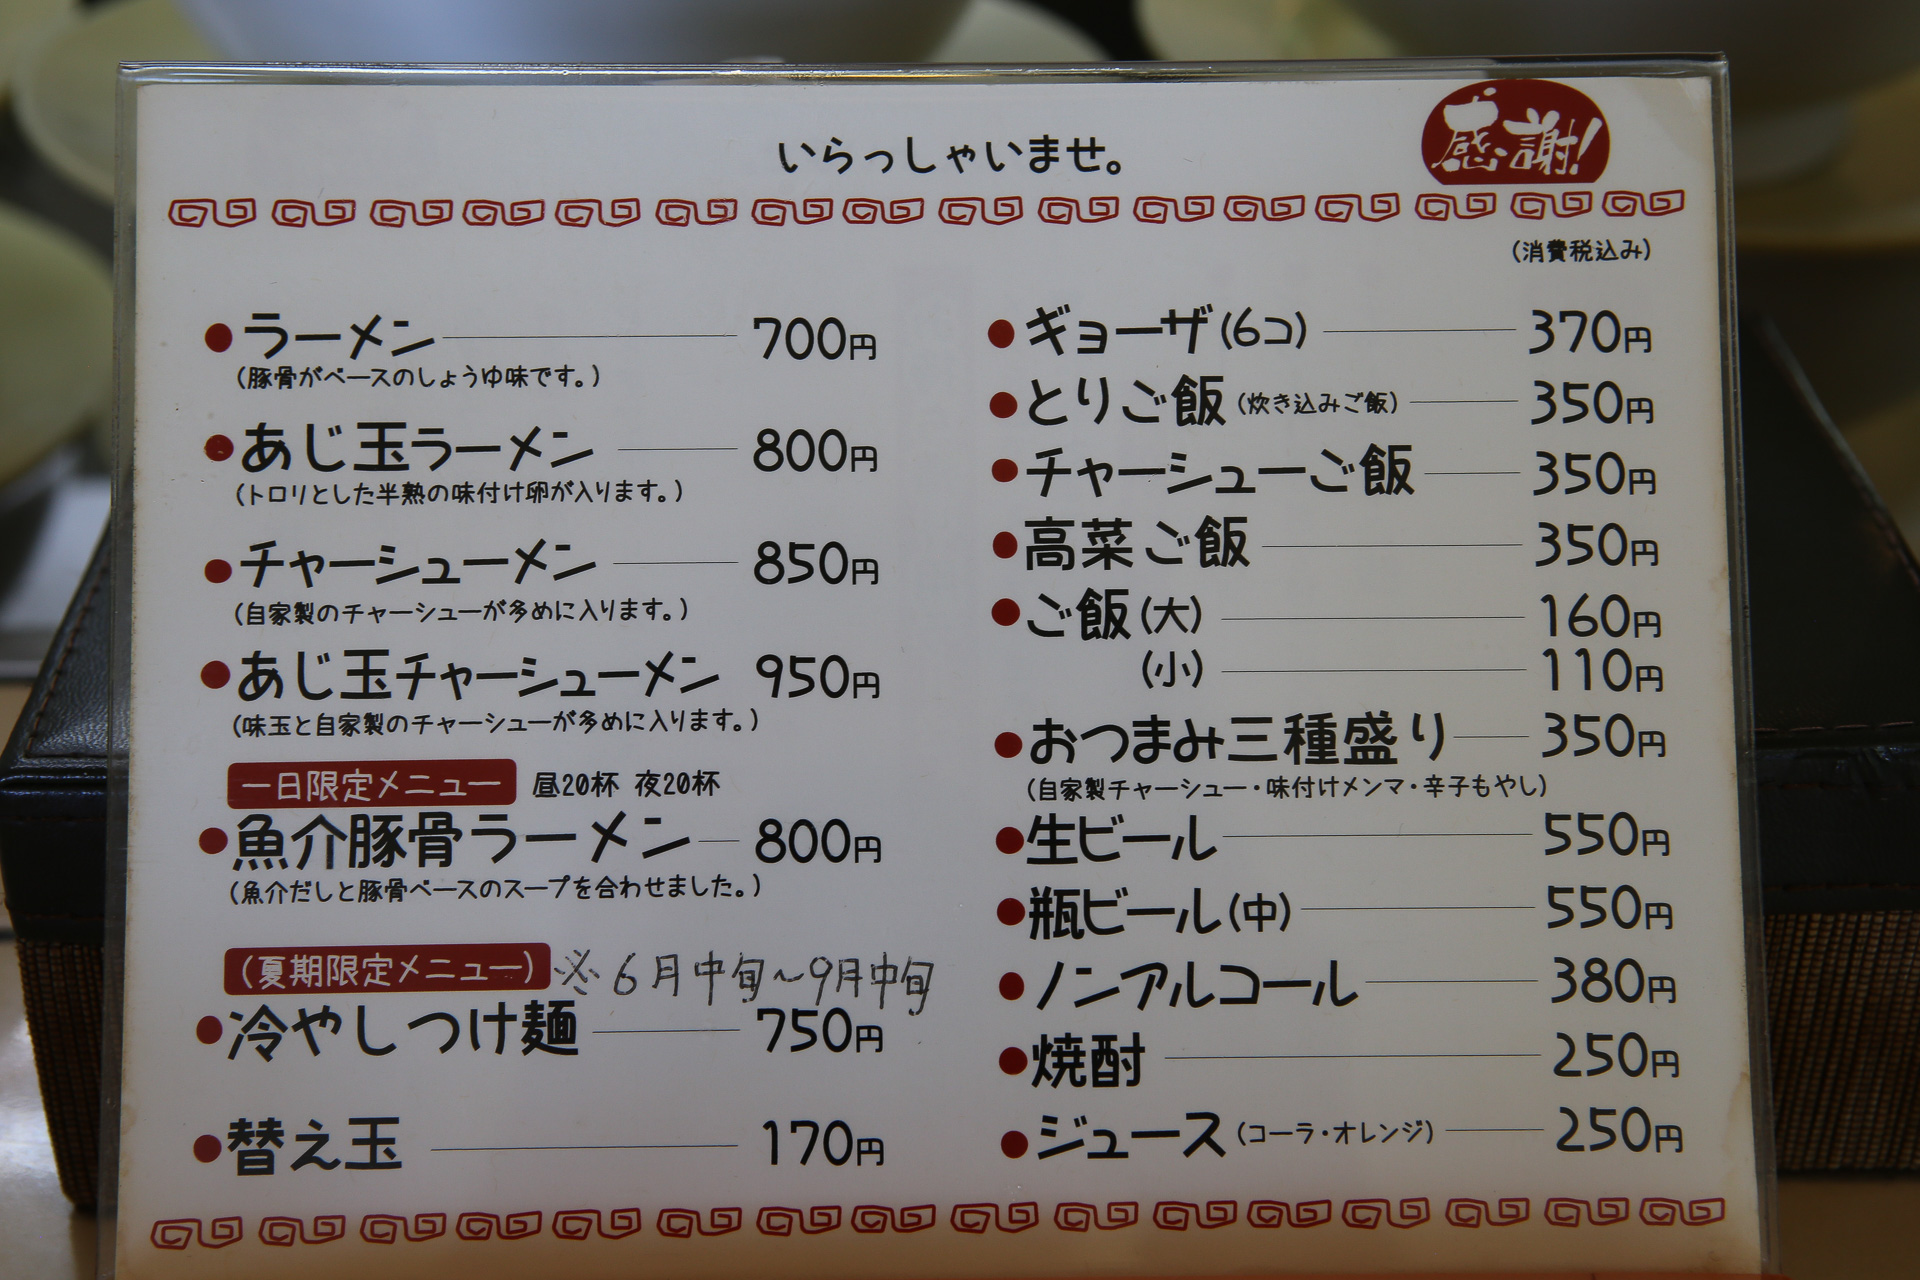 いらっしゃいませ。
感謝!
(消費税込み)
●ラーメン 700円
(豚骨がベースのしょうゆ味です。)
●あじ玉ラーメン 800円
(トロリとした半熟の味付け卵が入ります。)
●チャーシューメン 850円
(自家製のチャーシューが多めに入ります。)
●あじ玉チャーシューメン 950円
(味玉と自家製のチャーシューが多めに入ります。)
一日限定メニュー 昼20杯 夜20杯
●魚介豚骨ラーメン 800円
(魚介だしと豚骨ベースのスープを合わせました。)
(夏期限定メニュー) ※6月中旬~9月中旬
●冷やしつけ麺 750円
●替え玉 170円
●ギョーザ(6コ) 370円
●とりご飯(炊き込みご飯) 350円
●チャーシューご飯 350円
●高菜ご飯 350円
●ご飯(大) 160円
(小) 110円
●おつまみ三種盛り 350円
(自家製チャーシュー・味付けメンマ・辛子もやし)
●生ビール 550円
●瓶ビール(中) 550円
●ノンアルコール 380円
●焼酎 250円
●ジュース(コーラ・オレンジ) 250円